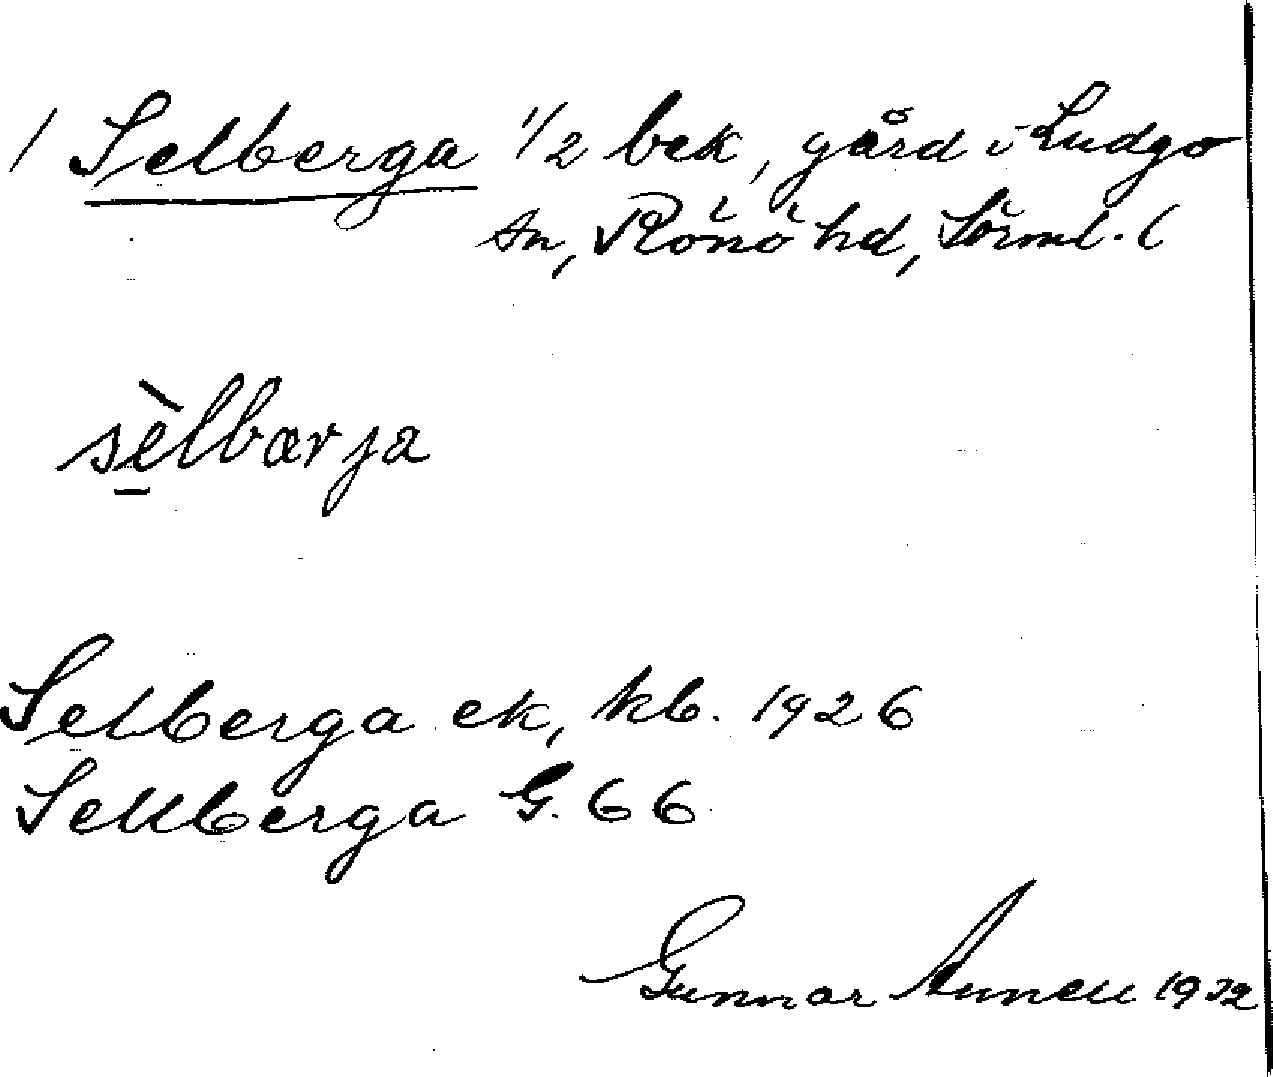 / Selberga 1/2 bek, gård i Ludgo
sn, Rönö hd, Sörml. l
sèlbærja
Selberga ek, kb. 1926
Sellberga G. 66
Gunnar 1932